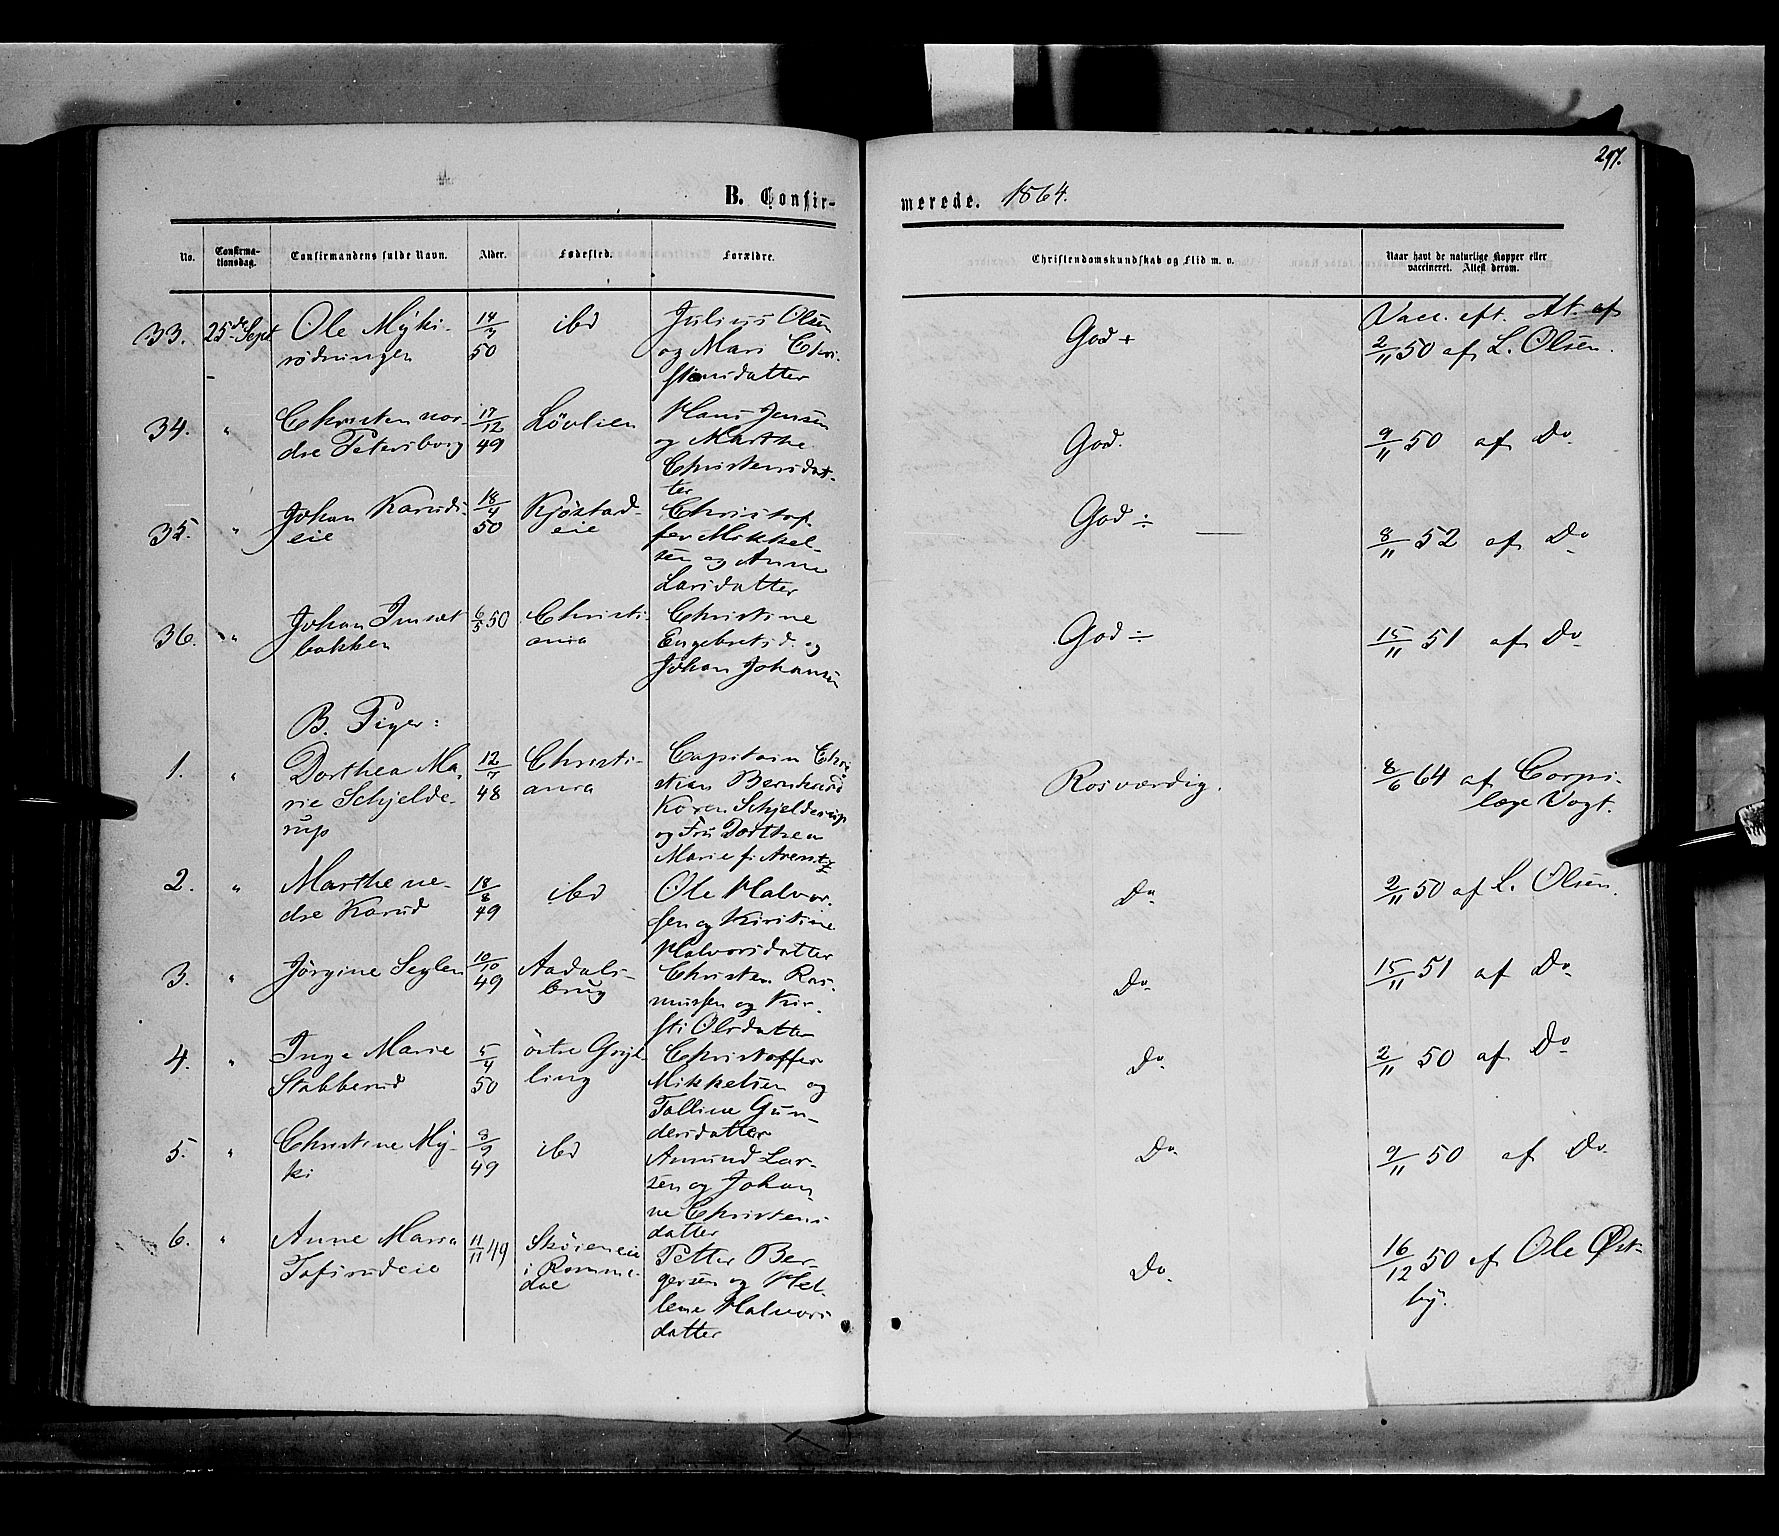 297.
B. Confir-
merede. 1864.
No.
Confirma-
tionsdag.
Confirmandens fulde Navn.
Alder.
Fødested.
Forældre.
Christendomskundskab og Flid m. v.
Naar havt de naturlige Kopper eller
vaccineret. Attest derom.
33. 25de Sept Ole Myki-
rödningen
14/7
50
ibd
Julius Olsen
og Mari Chri-
stiansdatter
God +
Vacc. eft. At. af
2/11 50 af L. Olsen.
34. " Christen nor-
dre Petersborg
17/12
49
Lövlien
Hans Jensen
og Marthe
Christensdat-
ter
God.
9/11 50 af Do
35. " Johan Karuds-
eie
18/4
50
Kjöstad-
eie
Christof-
fer Mikkel-
sen og Anne
Larsdatter
God ÷
8/11 52 af Do
36. " Johan Imset
bakken
6/5 50
Christi-
ania
Christine
Engebretsd. og
Johan Johansen
God ÷
15/11 51 af Do
B. Piger:
1. " Dorthea Ma-
rie Schjelde-
rup
12/7
48
Christi-
ania
Capitain Chri
stian
Koren Schjelderup
og Fru Dorthea
Marie f. Arentz
Rosværdig.
8/6 64 af Corps-
læge Vogt.
2. " Marthe ne-
dre Karud
18/8
49
ibd
Ole Halvor-
sen og Kirstine
Halvorsdatter
Do
2/11 50 af L. Olsen.
3. " Jörgine Seglen
10/10
49
Aadals-
brug
Christen Ras-
mussen og Kir-
sti Olsdatter
Do
15/11 51 af Do
4. " Inge Marie
Stabberud
5/4
50
östre Gryl-
ling
Christoffer
Mikkelsen og
Talline Gun-
dersdatter
Do
2/11 50 af Do
5. " Christine My-
ki
8/9
49
ibd
Amund Lar-
sen og Johan-
ne Christens
datter
Do
9/11 50 af Do
6. " Anne Maria
Tofsrudeie
11/11 49
Skörieneie
i Romme-
dal
Petter Ber-
gersen og Hel-
lene Halvors
datter
Do
16/12 50 af Ole Øst-
by.